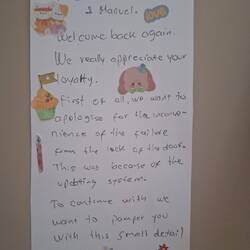 & Manuel.
love
Welcome back again.
We really appreciate your
loyalty.
First of all, we want to
apologise for the inconve-
nience of the failure
from the lock of the door.
This was because of the
updating system.
To continue with we
want to pamper you
with this small detail